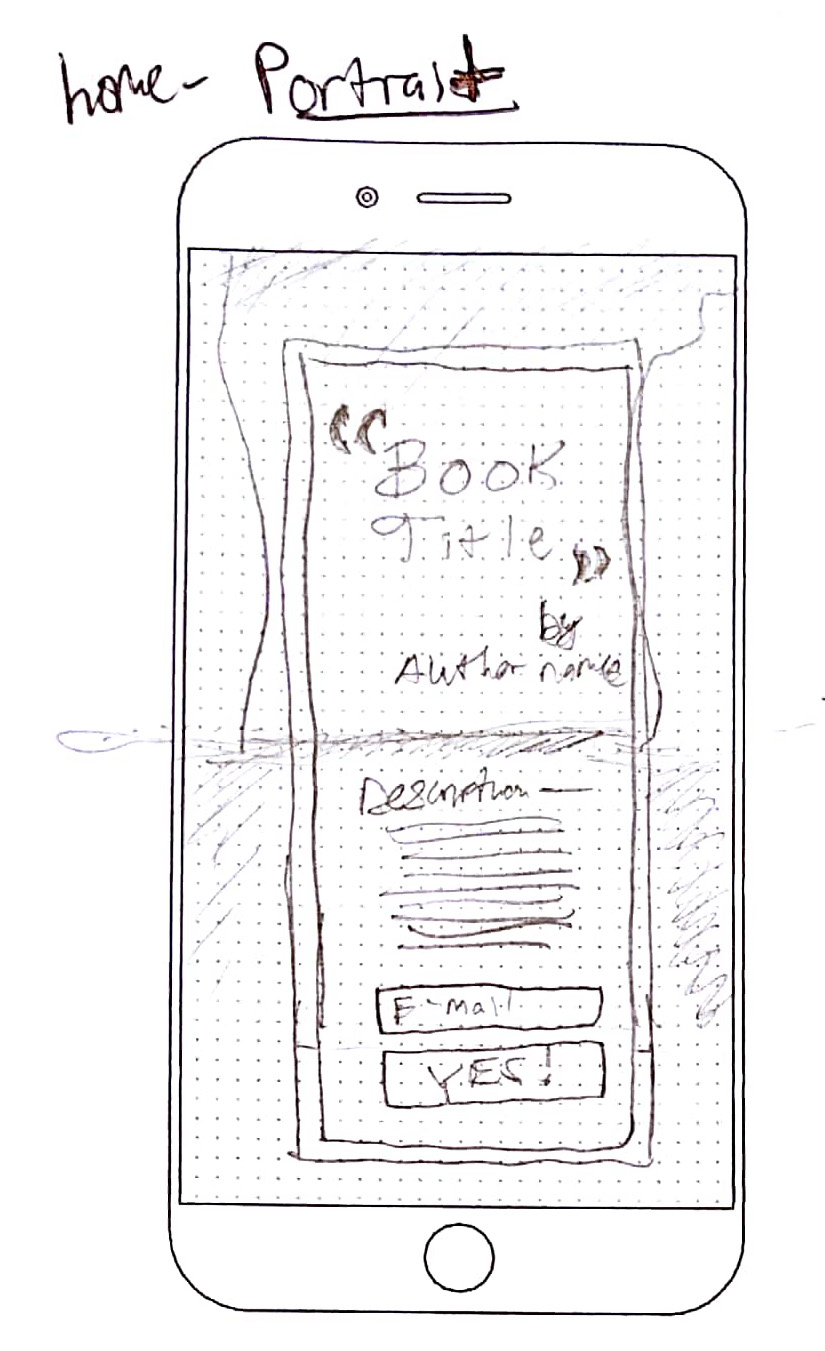 home - Portrait
“Book
Title”
by
Author name
Description —
E-mail
YES!